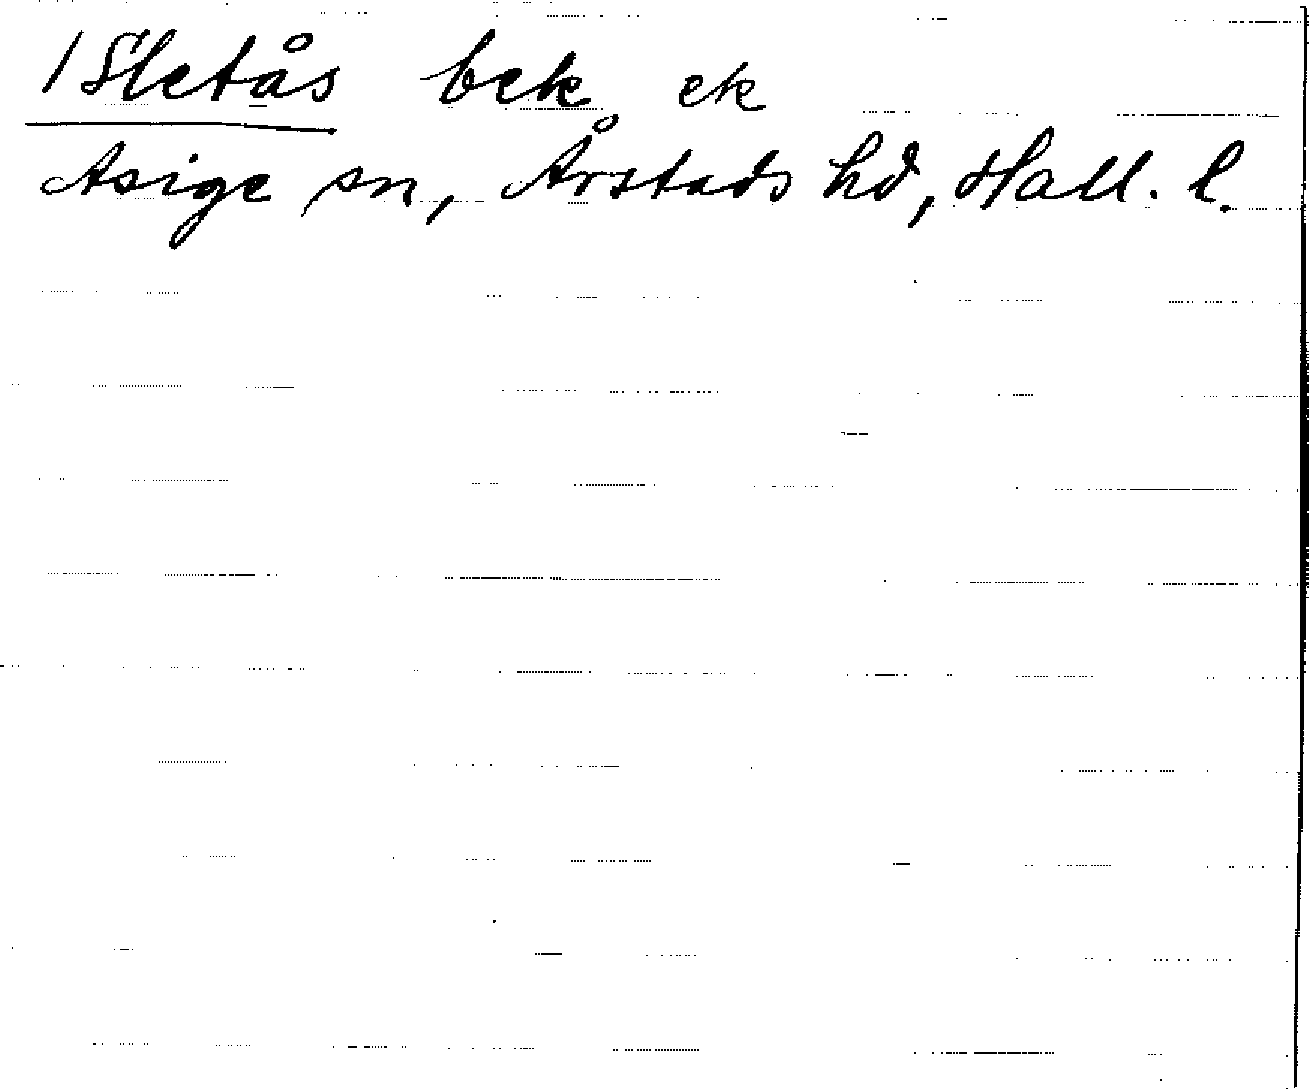 /Sletås bek ek
Asige sn, Årstads hd, Hall. l.